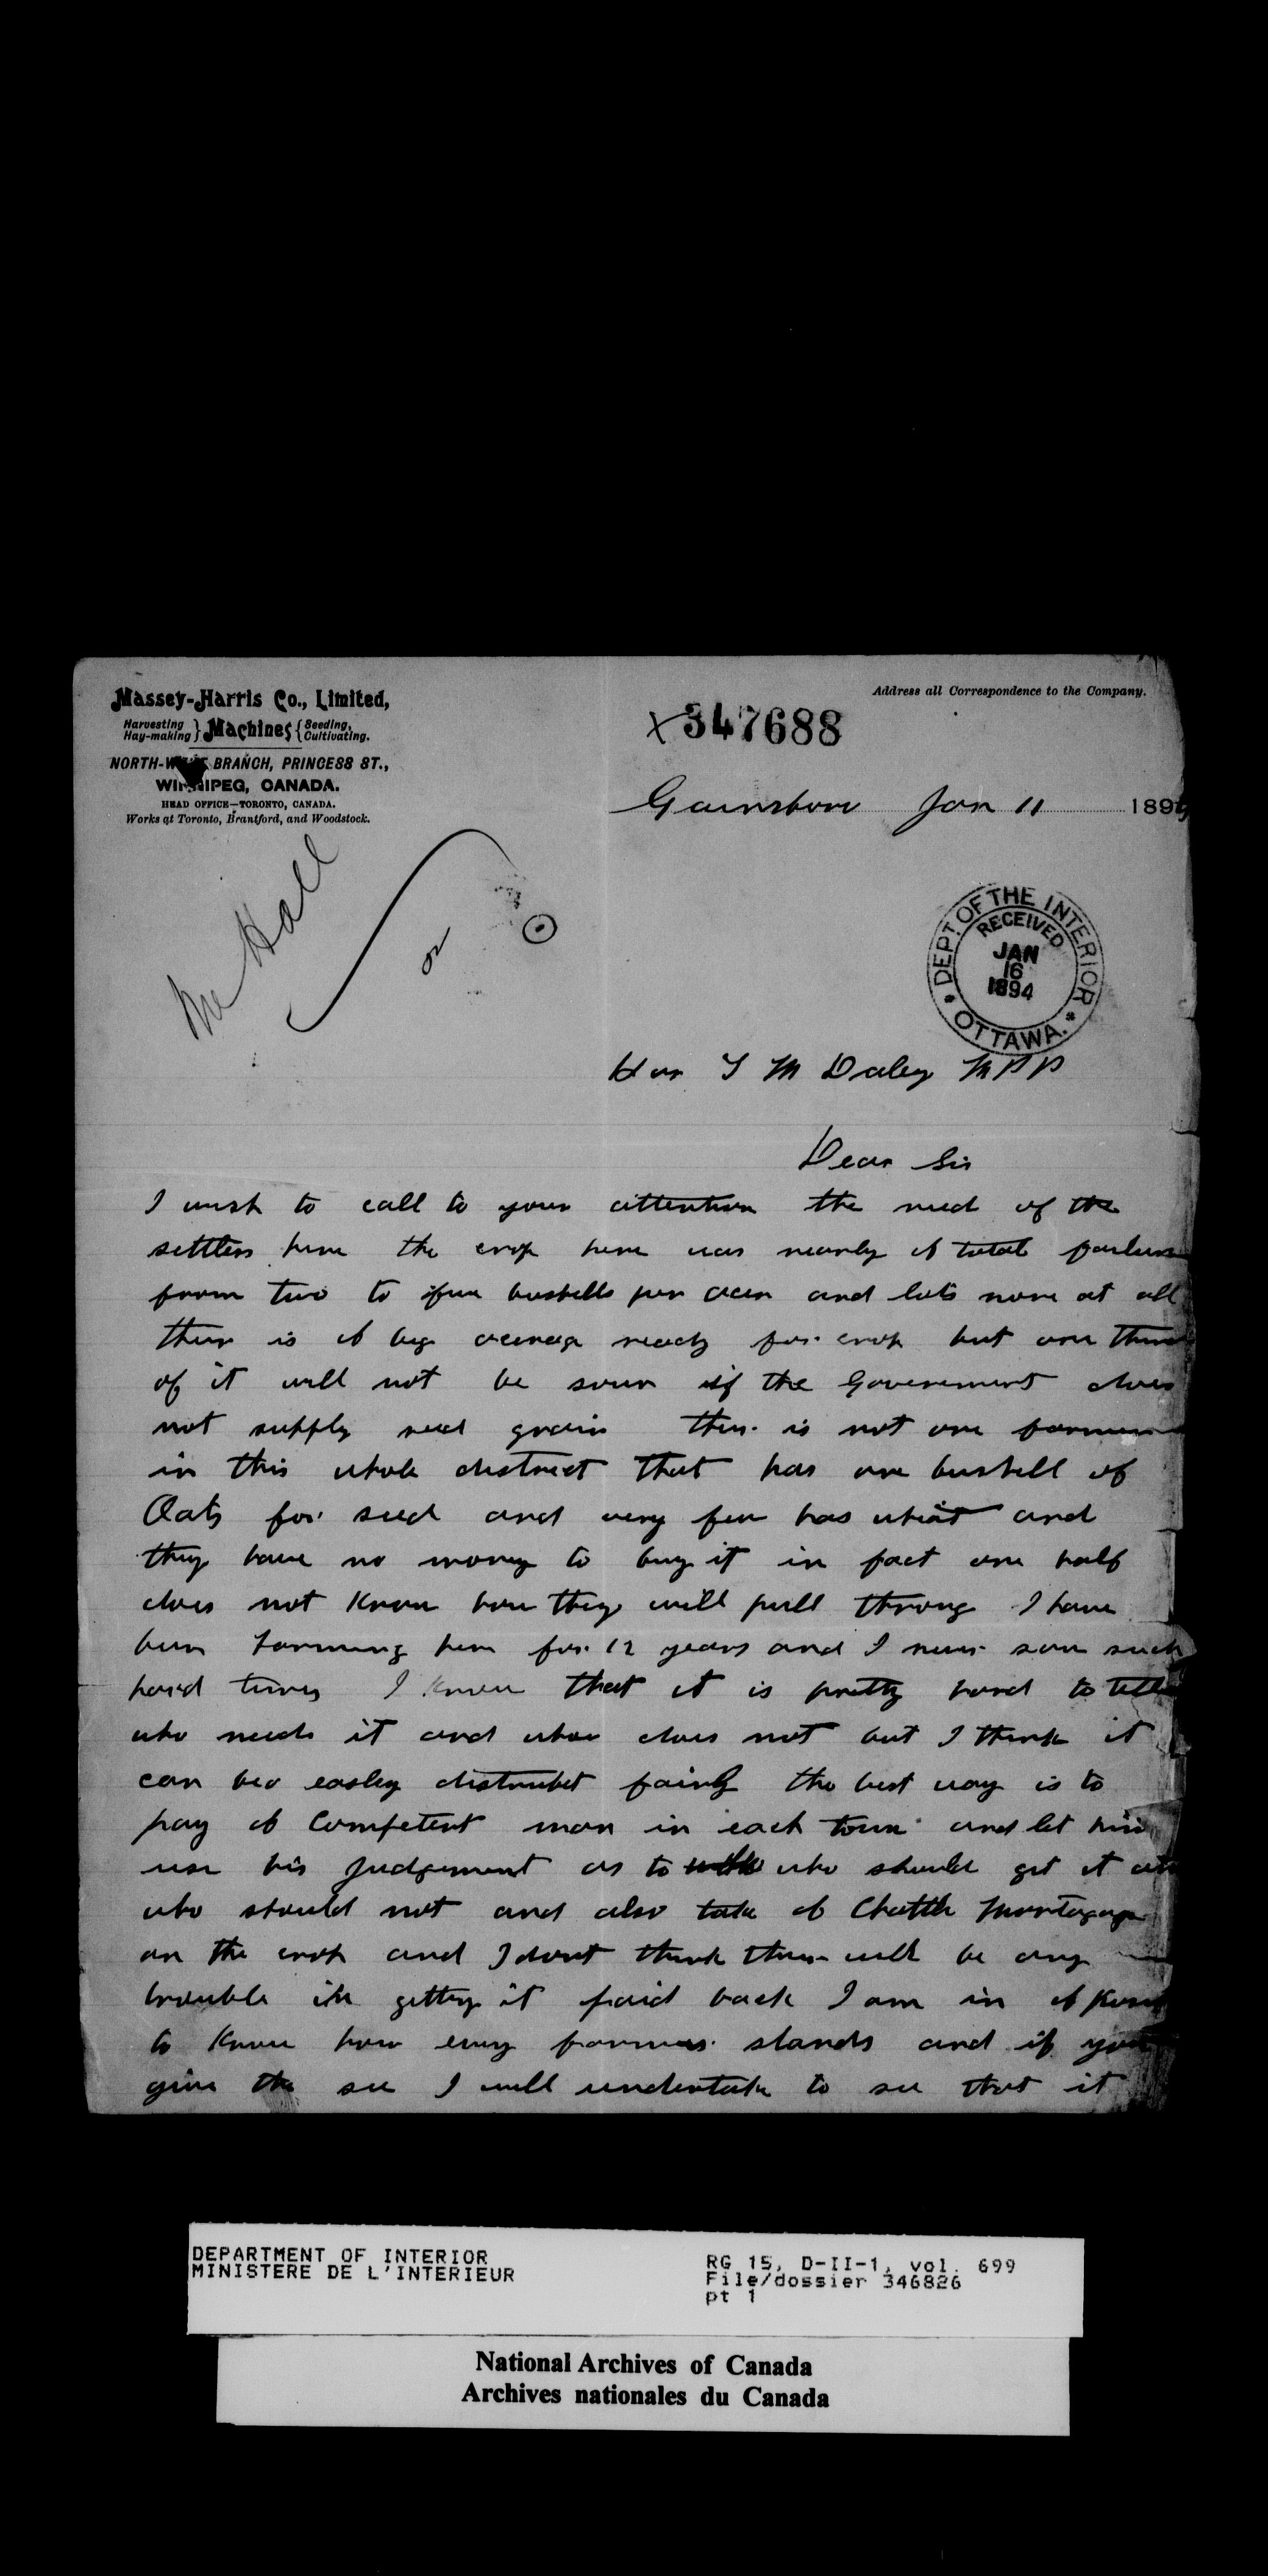 Massey-Harris Co., Limited,
Harvesting Hay-making } Machines { Seeding, Cultivating.
NORTH-WEST BRANCH, PRINCESS ST.,
WINNIPEG, CANADA.
HEAD OFFICE—TORONTO, CANADA.
Works at Toronto, Brantford, and Woodstock.
Address all Correspondence to the Company.
X347688
Gainsboro Jan 11 189
Mr Hall
DEPT. OF THE INTERIOR
RECEIVED
JAN
16
1894
OTTAWA.
Hon T M Daley MPP
Dear Sir
I wish to call to your attention the need of the
settlers here the crop here was nearly a total failure
from two to five bushells per acer and lots none at all
ther is a big acerage ready for crop but one third
of it will not be sown if the Government does
not supply seed grain ther is not one farmer
in this whole district that has one bushell of
Oats for seed and very few has wheat and
they have no money to buy it in fact one half
does not know how they will pull throug I have
been farming here for 12 years and I never saw such
hard times I know that it is pretty hard to tell
who needs it and who does not but I think it
can be easley distrubet fairly the best way is to
pay a Competent man in each town and let him
use his Judgement as to who should get it
who should not and also take a Chattle Mortagage
on the crop and I dont think ther will be any
trouble in getting it paid back I am in a
to know how evry farmer stands and if you
give the see I will undertake to see that it
DEPARTMENT OF INTERIOR
MINISTERE DE L'INTERIEUR
RG 15, D-II-1, vol. 699
File/dossier 346826
pt 1
National Archives of Canada
Archives nationales du Canada